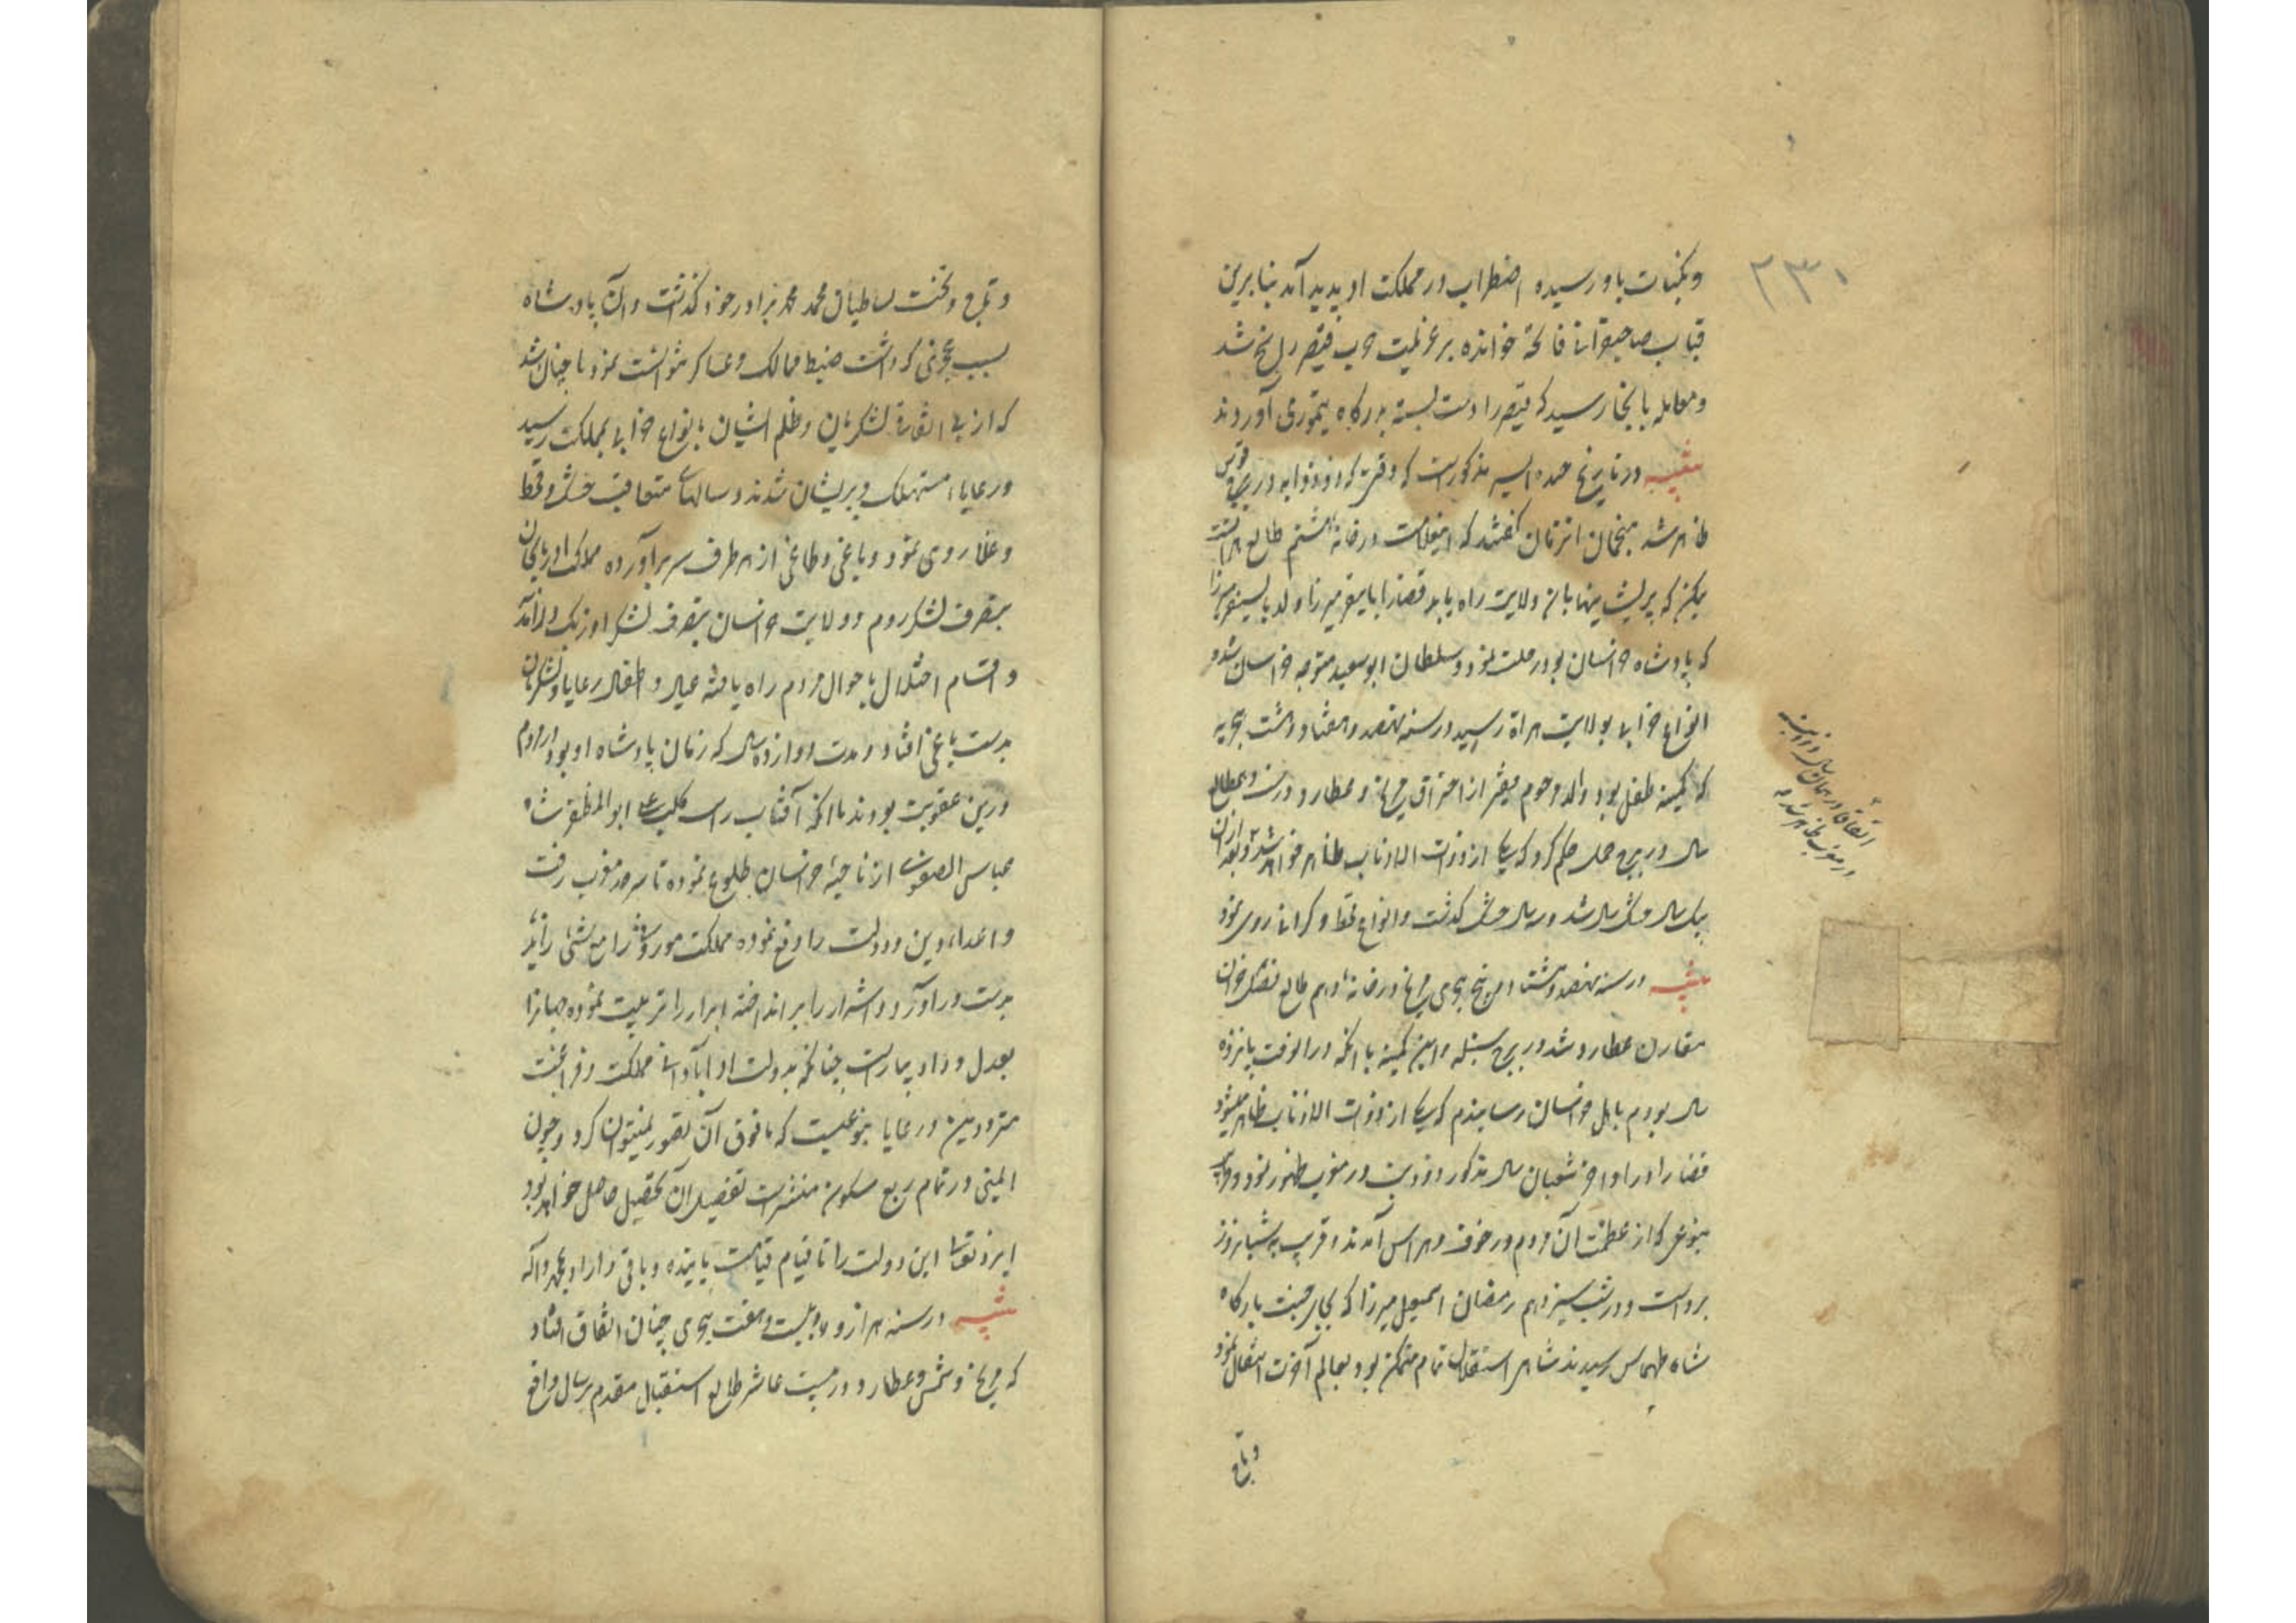 ۲۳۰
و نکبات باو رسیده اضطراب در مملکت او پدید آمد بنا برین
جناب صاحبقرانی فاتحه خوانده بر عزیمت حرب قیصر راسخ شد
و معامله بانجا رسید که قیصر را دست بسته بدرگاه تیموری آوردند
تنبیه در تاریخ مذکورست که وقتی که ذو ذوابه در برج قوس
ظاهر شد منجمان انزمان گفتند که اینعلامت در خانه هشتم طالع هراتست
یمکن که پریشانیها بان ولایت راه یابد قضا را بایسنقر میرزا ولد بایسنقر میرزا
که پادشاه خراسان بود رحلت نمود و سلطان ابو سعید متوجه خراسان شد و
انواع خرابی بولایت هراة رسید در سنه نهصد و هفتاد و هشت هجریه
که کمینه طفل بود والد مرحوم فقیر از احتراق مریخ و عطارد و
سال در برج حمل حکم کرد که یکی از ذوات الاذناب ظاهر خواهد شد و بعد از آن
یک سال خشک سال شد و سال خشک گذشت و انواع قحط و گرانی روی نمود
اتفاقا در همان سال ذو ذنبه
در مغرب ظاهر شد
تنبیه در سنه نهصد و هشتاد و پنج هجری مریخ در خانه دهم طالع فصل خزان
مقارن عطارد شد در برج سنبله و این کمینه با آنکه در انوقت پانزده
سال بودم باهل خراسان رسانیدم که یکی از ذوات الاذناب ظاهر میشود
قضا را در اواخر شعبان سال مذکور ذو ذنب در مغرب ظهور نمود و
بنوعی که از عظمت آن مردم در خوف و هراس آمدند و قریب شبانروز
برداشت و در شب سیزدهم رمضان اسمعیل میرزا که بجای جنت بارگاه
شاه طهماسب رسید بشاهی استقلال تمام متمکن بود بعالم آخرت انتقال نمود
و تاج
و تاج و تخت سلطان محمد برادر خود گذاشت و آن پادشاه
بسبب عجزی که داشت ضبط ممالک و عساکر نتوانست نمود تا چنان شد
که از بی اتفاقی لشکریان و ظلم ایشان بانواع خرابی بمملکت رسید
و رعایا مستهلک و پریشان شدند و سالهای متعاقب خشک و قحط
و غلا روی نمود و یاغی و طاغی از هر طرف سر برآورده ممالک آذربایجان
بتصرف لشکر روم و ولایت خراسان بتصرف لشکر اوزبک درآمد
و اقسام اختلال باحوال مردم راه یافته عیال و اطفال رعایا و لشکریان
بدست یاغی افتاد و مدت دوازده سال که زمان پادشاه او بود مردم
درین عقوبت بودند تا آنکه آفتاب ابو المظفر شاه
عباس الصفوی از ناحیه خراسان طلوع نموده تا سرحد مغرب رفت
و اعداء دین و دولت را دفع نموده مملکت موروثی را مع شیء زاید
بدست درآورد و اشرار را برانداخته ابرار را تربیت نموده جهانرا
بعدل و داد بیاراست چنانکه بدولت او آبادانی مملکت و فراغت
مترددین و رعایا بنوعیست که مافوق آن تصور نمیتوان کرد و چون
المعنی در تمام ربع مسکون منتشرست تفصیل آن تحصیل حاصل خواهد بود
ایزد تعالی این دولت را تا قیام قیامت پاینده و باقی داراد بمحمد و آله
تنبیه در سنه هزار و بیست و هفت هجری چنان اتفاق افتاد
که مریخ و شمس و عطارد در بیت عاشر طالع استقبال مقدم بر سال واقع